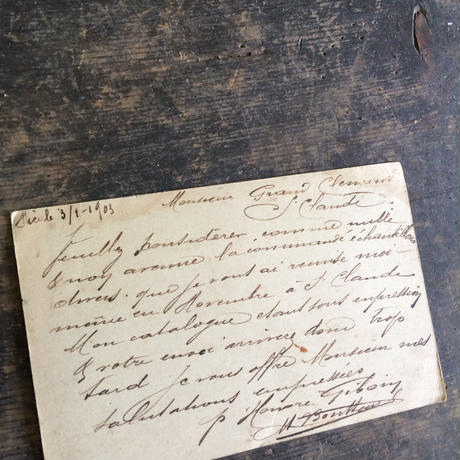 Nice le 3/1-1903
Monsieur Grand Clement
S' Claude
Veuillez considerer comme nulle
& non avenue la commande échantillons
divers que je vous ai remise moi-
même en Novembre à S' Claude
Mon catalogue étant sous impression
& votre envoi arrivera donc trop
tard je vous offre Monsieur mes
salutations empressées
p Honoré